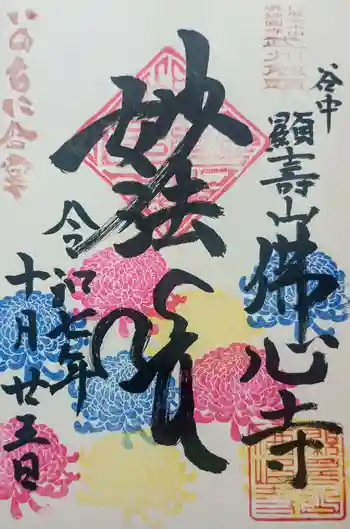 谷中
顯壽山
佛心寺
妙法
令和七年
十月廿五日
いのちに合掌